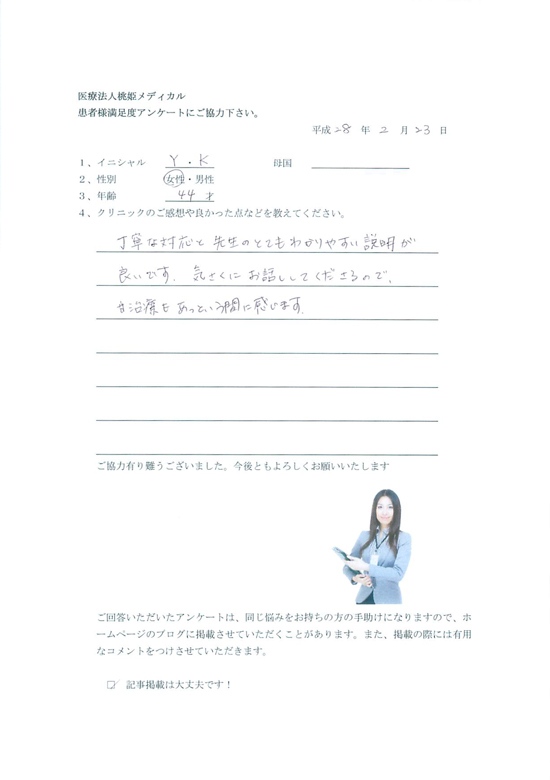 医療法人桃姫メディカル
患者様満足度アンケートにご協力下さい。
平成 28 年 2 月 23 日
1、イニシャル Y・K 母国
2、性別 女性・男性
3、年齢 44 才
4、クリニックのご感想や良かった点などを教えてください。
丁寧な対応と先生のとてもわかりやすい説明が
良いです。気さくにお話ししてくださるので、
治療もあっという間に感じます。
ご協力有り難うございました。今後ともよろしくお願いいたします
ご回答いただいたアンケートは、同じ悩みをお持ちの方の手助けになりますので、ホ
ームページのブログに掲載させていただくことがあります。また、掲載の際には有用
なコメントをつけさせていただきます。
☑ 記事掲載は大丈夫です！